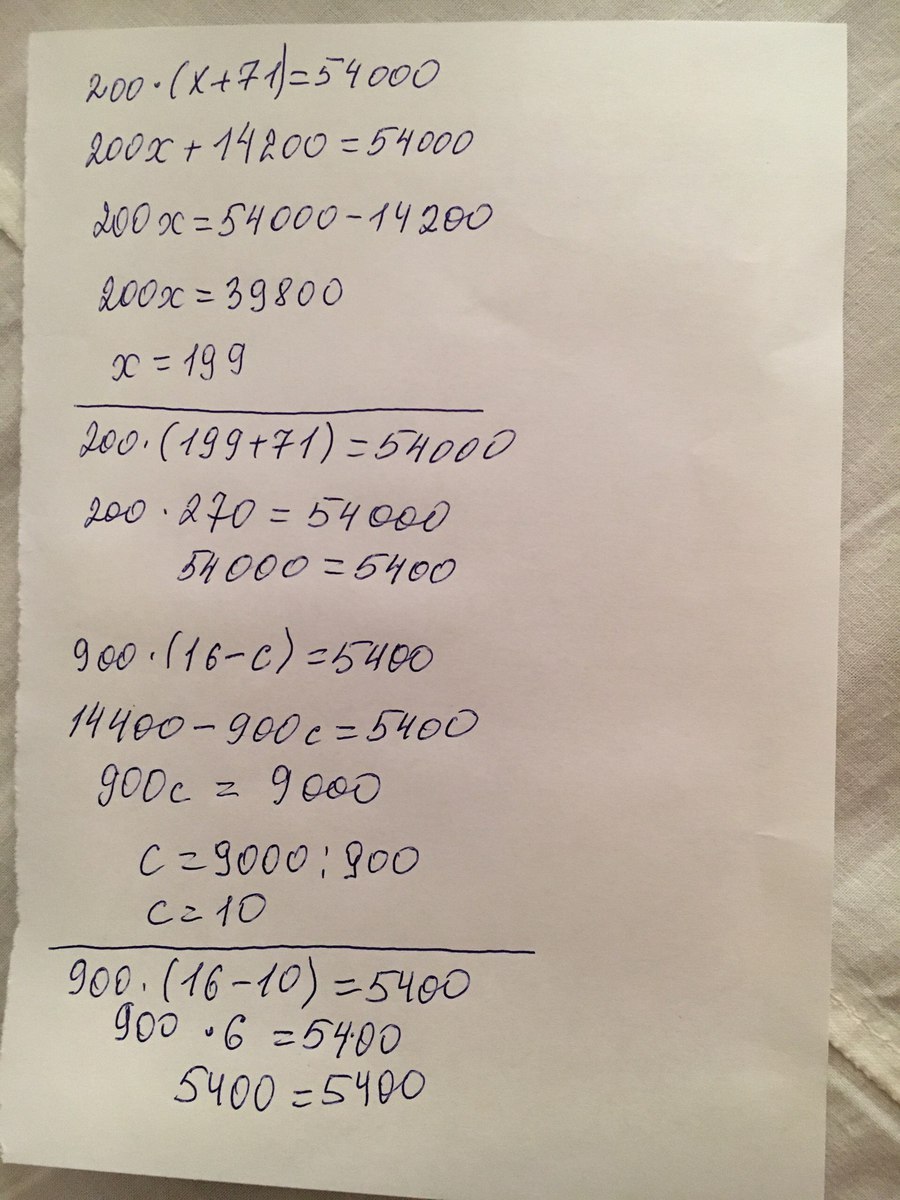 200·(x+71)=54000
200x+14200=54000
200x=54000-14200
200x=39800
x=199
200·(199+71)=54000
200·270=54000
54000=5400
900·(16-c)=5400
14400-900c=5400
900c=9000
c=9000:900
c=10
900·(16-10)=5400
900·6=5400
5400=5400